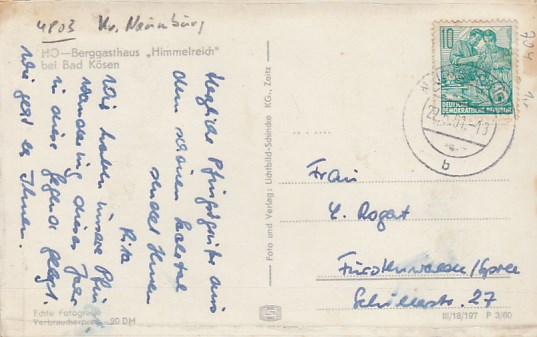 4803 Kr. Naumburg
HO—Berggasthaus „Himmelreich"
bei Bad Kösen
Herzliche Pfingstgrüße aus
dem schönen Saaletal
sendet Ihnen
Rita
Wir haben unsere Pfingst-
wanderung dieses Jahr
in diese Gegend gelegt.
Wie geht es Ihnen.
Echte Fotografie
Verbraucherpreis 20 DM
Foto und Verlag: Lichtbild-Schincke KG., Zeitz
10
DEUTSCHE
DEMOKRATISCHE REPUBLIK
b
704
Frau
Rogat
Fürstenwalde/Spree
Schillerstr. 27
III/18/197 P 3/60